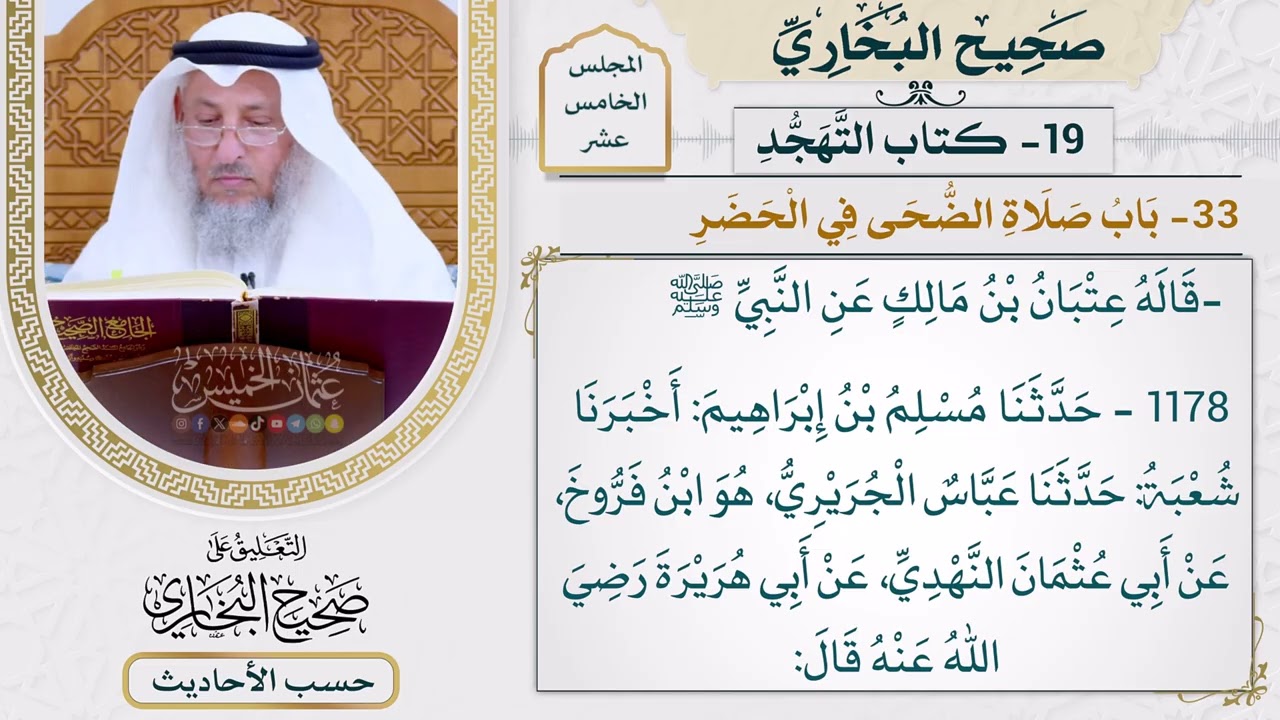 صَحِيح البُخَارِيِّ
المجلس
الخامس
عشر
19- كتاب التَّهَجُّدِ
33- بَابُ صَلَاةِ الضُّحَى فِي الْحَضَرِ
-قَالَهُ عِتْبَانُ بْنُ مَالِكٍ عَنِ النَّبِيِّ ﷺ
1178 - حَدَّثَنَا مُسْلِمُ بْنُ إِبْرَاهِيمَ: أَخْبَرَنَا
شُعْبَةُ: حَدَّثَنَا عَبَّاسٌ الْجُرَيْرِيُّ، هُوَ ابْنُ فَرُّوخَ،
عَنْ أَبِي عُثْمَانَ النَّهْدِيِّ، عَنْ أَبِي هُرَيْرَةَ رَضِيَ
اللهُ عَنْهُ قَالَ:
الجامع الصحيح
عثمان الخميس
التَّعْلِيقُ عَلَى
صَحِيح البُخَارِي
حسب الأحاديث